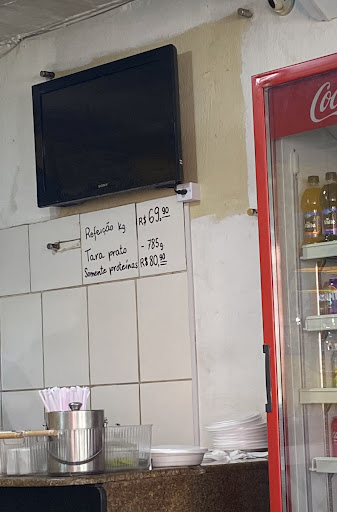 Refeição kg R$69,90
Tara prato - 785g
Somente proteínas R$80,90
Coc